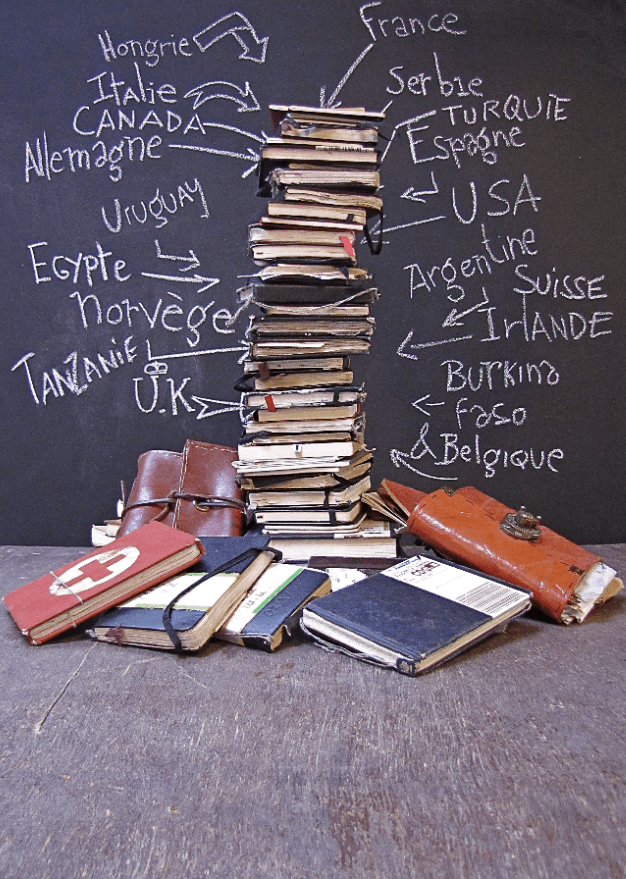 Hongrie
Italie
CANADA
Allemagne
Uruguay
Egypte
Norvège
TANZANIE
U.K
France
Serbie
TURQUIE
Espagne
USA
Argentine
SUISSE
IrlANDE
Burkina
faso
Belgique